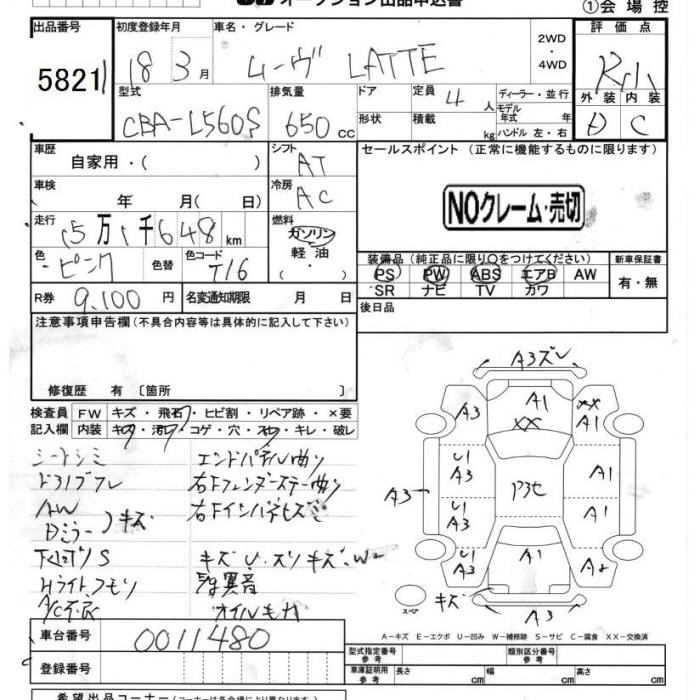 オークション出品申込書
①会場控
出品番号 初度登録年月 車名・グレード 評価点
5821 18 3月 ムーヴ LATTE 2WD・4WD
型式 排気量 ドア 定員 4人 ディーラー・並行 外装 内装
CBA-L560S 650cc 形状 積載 kg モデル年式 年 ハンドル 左・右 D C
車歴 自家用・( ) シフト AT セールスポイント (正常に機能するものに限ります)
車検 年 月( 日) 冷房 AC
NOクレーム・売切
走行 15万1千648km 燃料 ガソリン 軽油
装備品 (純正品に限り○をつけてください) 新車保証書
色 ピンク 色替 色コード T16 PS PW ABS エアB AW 有・無
SR ナビ TV カワ
R券 9,100円 名変通知期限 月 日 後日品
注意事項申告欄 (不具合内容等は具体的に記入して下さい)
修復歴 有 〔箇所
検査員 FW キズ・飛石・ヒビ割・リペア跡・×要
記入欄 内装 キズ・汚レ・コゲ・穴・スレ・キレ・破レ
シートシミ エンドパネル曲リ
右フェンダーステー曲リ
キズ
Hライトクモリ 異音
A/C不良 オイルモレ
A3ズレ
A3 A1 XX XX A1
U1 A3 A1
A3 U1 A3 A1
U1 A3 A1
スペア キズ A3
A-キズ E-エクボ U-凹み W-補修跡 S-サビ C-腐食 XX-交換済
車台番号 0011480
型式指定番号 参考 類別区分番号 参考
登録番号 車庫証明用 参考 長さ cm 幅 cm 高さ cm
希望出品コーナー